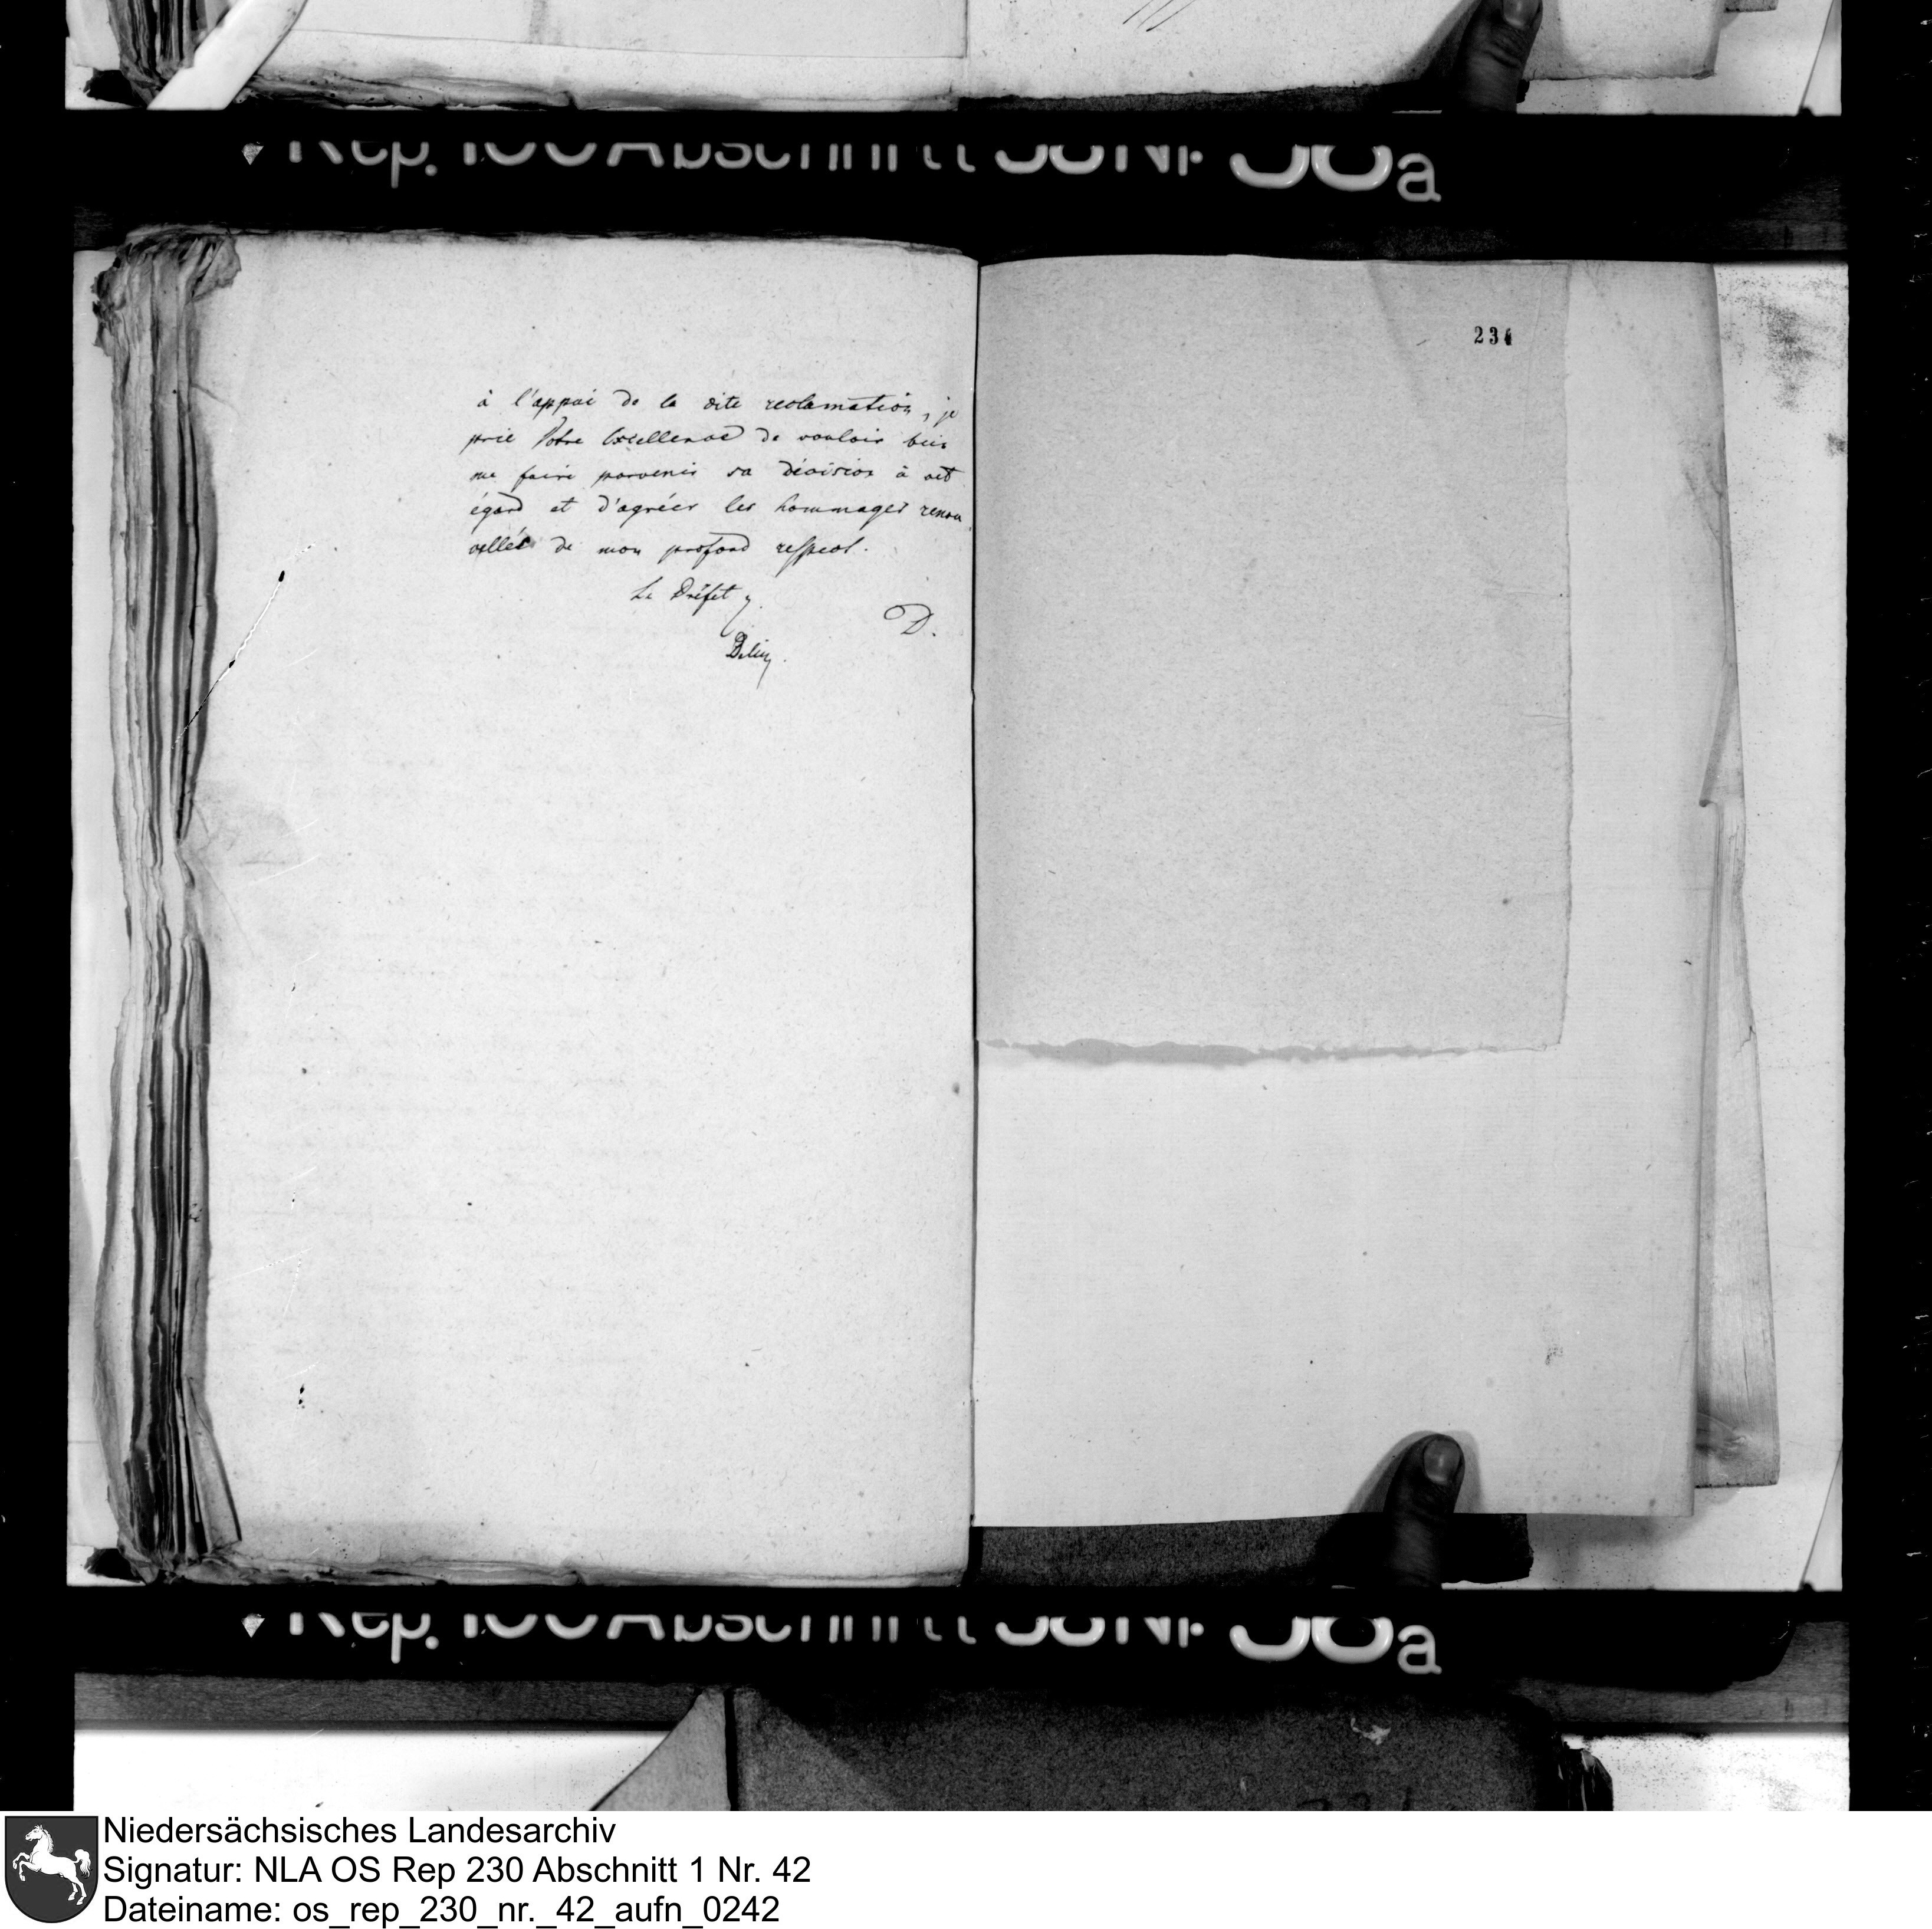 Rep. 100 Abschnitt 58 Nr 38a
234
à l'appui de la dite reclamation, je
prie Votre Excellence de vouloir bien
me faire parvenir sa décision à cet
égard et d'agréer les hommages renou
vellés de mon profond respect.
Le Préfet
D.
Rep. 100 Abschnitt 58 Nr 38a
Niedersächsisches Landesarchiv
Signatur: NLA OS Rep 230 Abschnitt 1 Nr. 42
Dateiname: os_rep_230_nr._42_aufn_0242